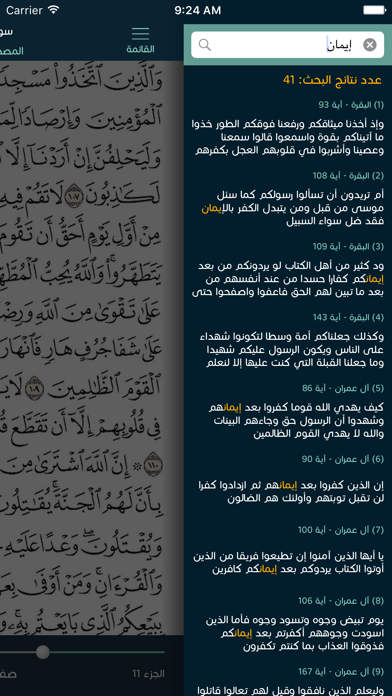 Carrier
9:24 AM
إيمان
عدد نتائج البحث: 41
(1) البقرة - آية 93
وإذ أخذنا ميثاقكم ورفعنا فوقكم الطور خذوا
ما آتيناكم بقوة واسمعوا قالوا سمعنا
وعصينا وأشربوا في قلوبهم العجل بكفرهم
(2) البقرة - آية 108
أم تريدون أن تسألوا رسولكم كما سئل
موسى من قبل ومن يتبدل الكفر بالإيمان
فقد ضل سواء السبيل
(3) البقرة - آية 109
ود كثير من أهل الكتاب لو يردونكم من بعد
إيمانكم كفارا حسدا من عند أنفسهم من
بعد ما تبين لهم الحق فاعفوا واصفحوا حتى
(4) البقرة - آية 143
وكذلك جعلناكم أمة وسطا لتكونوا شهداء
على الناس ويكون الرسول عليكم شهيدا
وما جعلنا القبلة التي كنت عليها إلا لنعلم
(5) آل عمران - آية 86
كيف يهدي الله قوما كفروا بعد إيمانهم
وشهدوا أن الرسول حق وجاءهم البينات
والله لا يهدي القوم الظالمين
(6) آل عمران - آية 90
إن الذين كفروا بعد إيمانهم ثم ازدادوا كفرا
لن تقبل توبتهم وأولئك هم الضالون
(7) آل عمران - آية 100
يا أيها الذين آمنوا إن تطيعوا فريقا من الذين
أوتوا الكتاب يردوكم بعد إيمانكم كافرين
(8) آل عمران - آية 106
يوم تبيض وجوه وتسود وجوه فأما الذين
اسودت وجوههم أكفرتم بعد إيمانكم
فذوقوا العذاب بما كنتم تكفرون
(9) آل عمران - آية 167
وليعلم الذين نافقوا وقيل لهم تعالوا قاتلوا
القائمة
سو
المصح
وَٱلَّذِينَ ٱتَّخَذُوا۟ مَسْجِدً
ٱلْمُؤْمِنِينَ وَإِرْصَادًا لِّمَ
وَلَيَحْلِفُنَّ إِنْ أَرَدْنَآ إِلَّا
لَكَٰذِبُونَ ١٠٧ لَا تَقُمْ فِيهِ
مِنْ أَوَّلِ يَوْمٍ أَحَقُّ أَن تَقُومَ
يَتَطَهَّرُوا۟ وَٱللَّهُ يُحِبُّ ٱلْمُطَّهِّ
عَلَىٰ تَقْوَىٰ مِنَ ٱللَّهِ وَرِضْ
عَلَىٰ شَفَا جُرُفٍ هَارٍ فَٱنْهَارَ
ٱلْقَوْمَ ٱلظَّٰلِمِينَ ١٠٩ لَا يَ
فِى قُلُوبِهِمْ إِلَّآ أَن تَقَطَّعَ
١١٠ ۞ إِنَّ ٱللَّهَ ٱشْتَرَىٰ مِ
بِأَنَّ لَهُمُ ٱلْجَنَّةَ يُقَٰتِلُ
وَيُقْتَلُونَ وَعْدًا عَلَيْهِ
وَٱلْقُرْءَانِ وَمَنْ أَوْفَىٰ
بِبَيْعِكُمُ ٱلَّذِى بَايَعْتُم بِهِ
الجزء 11
صف